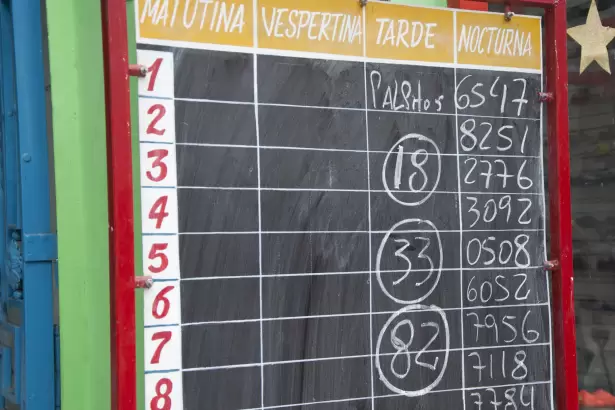 MATUTINA VESPERTINA TARDE NOCTURNA
1 PALPitos 6547
2 8251
3 18 2776
4 3092
5 33 0508
6 6052
7 82 7956
8 7118
7784